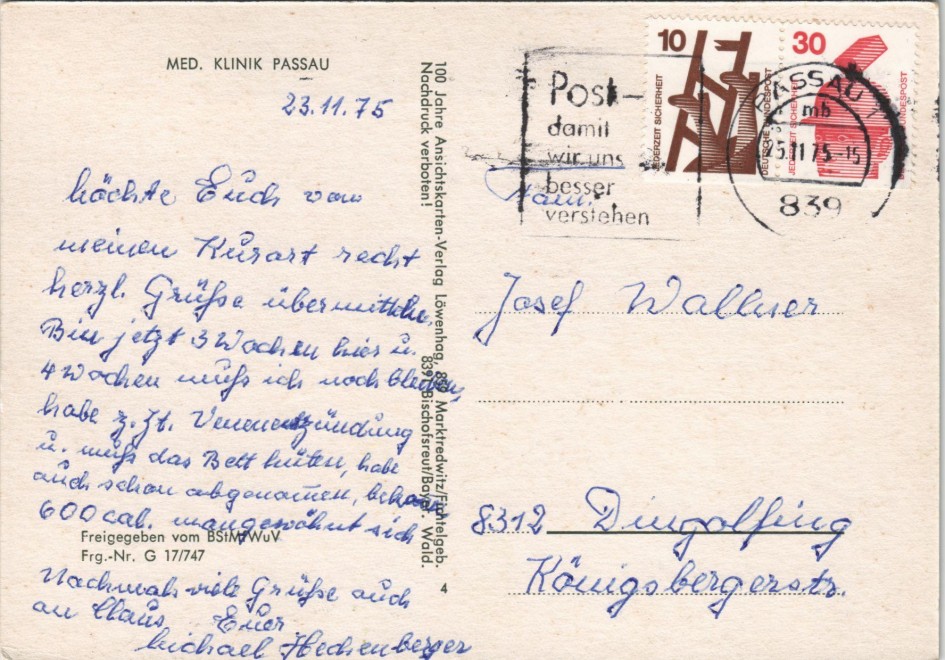 MED. KLINIK PASSAU
23.11.75
möchte Euch von
meinen Kurort recht
herzl. Grüße übermitteln.
Bin jetzt 3 Wochen hier u.
4 Wochen muß ich noch bleiben,
habe z. Zt. Venenentzündung
u. muß das Bett hüten, habe
auch schon abgenommen, bekomme
600 cal. man gewöhnt sich
Freigegeben vom BStMfWuV
Frg.-Nr. G 17/747
Nochmals viele Grüße auch
an Claus Euer
Michael Hechenberger
100 Jahre Ansichtskarten-Verlag Löwenhag, Marktredwitz/Fichtelgeb.
Nachdruck verboten! 839 Bischofsreut/Bayer. Wald.
4
Post-
damit
wir uns
besser
verstehen
10
JEDERZEIT SICHERHEIT
DEUTSCHE BUNDESPOST
30
JEDERZEIT SICHERHEIT
BUNDESPOST
PASSAU 1
mb
25.11.75-15
839
Fam.
Josef Wallner
8312 Dingolfing
Königsbergerstr.